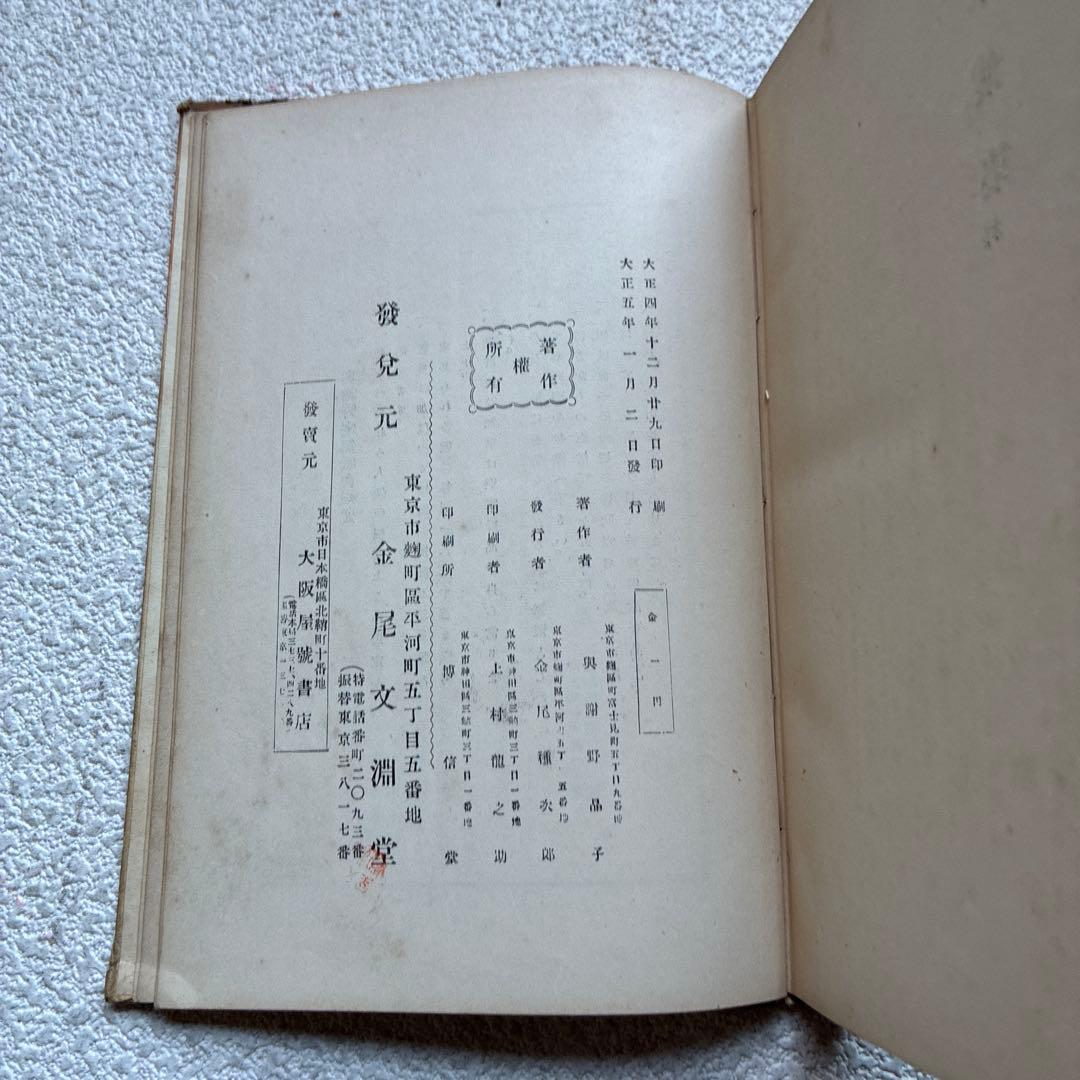 大正四年十二月廿九日印刷
大正五年一月二日發行
金一円
著作權所有
著作者
東京市麴區町富士見町五丁目九番地
與謝野晶子
發行者
東京市麴町區平河町五丁目五番地
金尾種次郎
印刷者
東京市神田區三崎町三丁目一番地
上村龍之助
印刷所
東京市神田區三崎町三丁目一番地
博信堂
發兌元
東京市麴町區平河町五丁目五番地
金尾文淵堂
(特電話番町二〇九三番
振替東京三八一七番
發賣元
東京市日本橋區北鞘町十番地
大阪屋號書店